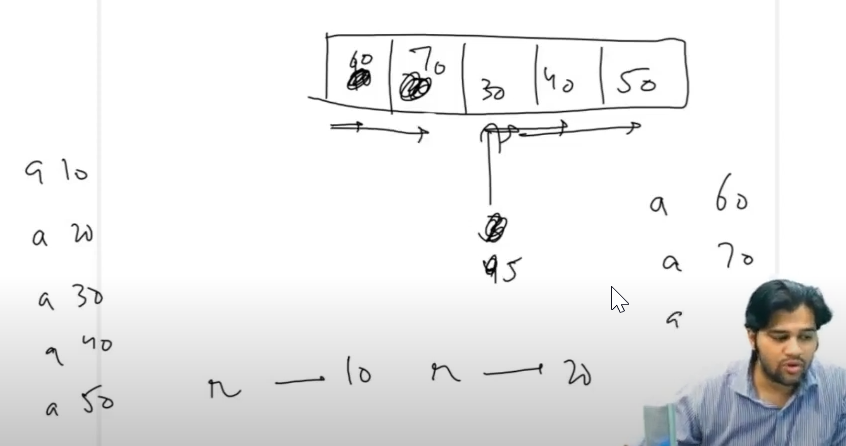 60 70 30 40 50
a 10
a 20
a 30
a 40
a 50
45
r — 10 r — 20
a 60
a 70
a